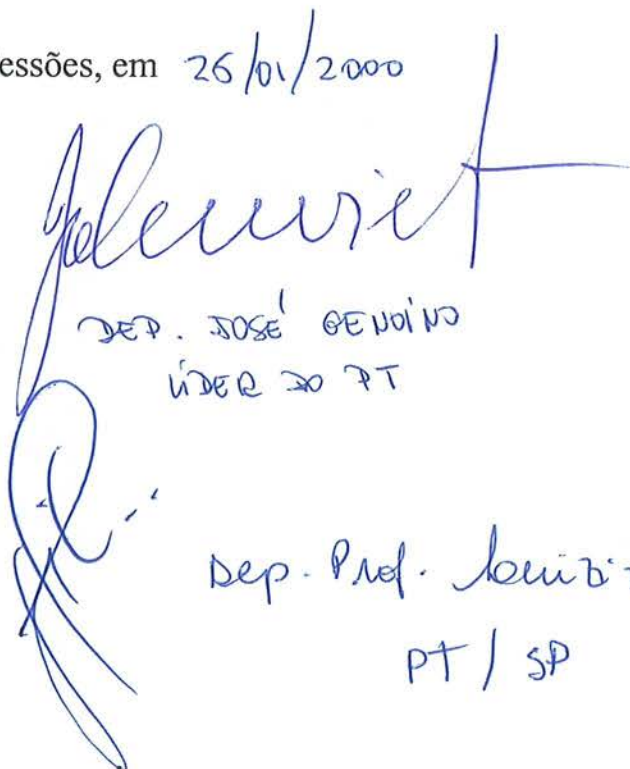 essões, em 26/01/2000
DEP. JOSÉ GENOÍNO
LÍDER DO PT
Dep. Prof.
PT / SP